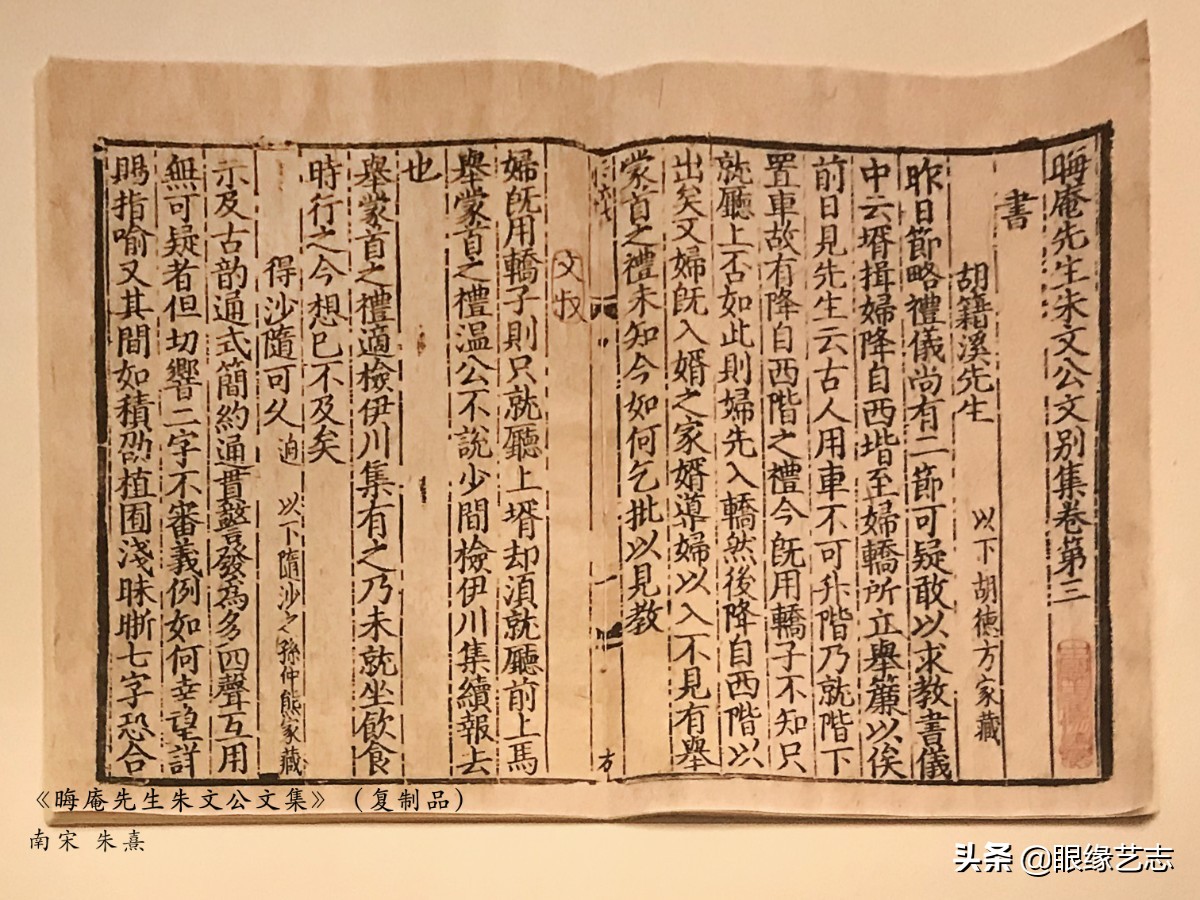 晦庵先生朱文公文別集卷第三
書
胡籍溪先生 以下胡德方家藏
昨日節略禮儀尚有二節可疑敢以求教書儀
中云壻揖婦降自西堦至婦轎所立舉簾以俟
前日見先生云古人用車不可升階乃就階下
置車故有降自西階之禮今旣用轎子不知只
就廳上否如此則婦先入轎然後降自西階以
出矣又婦旣入婿之家婿導婦以入不見有舉
蒙首之禮未知今如何乞批以見教
文叔
婦旣用轎子則只就廳上壻却須就廳前上馬
舉蒙首之禮温公不說少間檢伊川集續報去
也
舉蒙首之禮適檢伊川集有之乃未就坐飲食
時行之今想已不及矣
得沙隨可久 迥 以下隨沙之孫仲熊家藏
示及古韵通式簡約通貫警發為多四聲互用
無可疑者但切響二字不審義例如何幸望詳
賜指喻又其間如積劭植囿淺昧晣七字恐合
《晦庵先生朱文公文集》(复制品)
南宋 朱熹
头条 @眼缘艺志